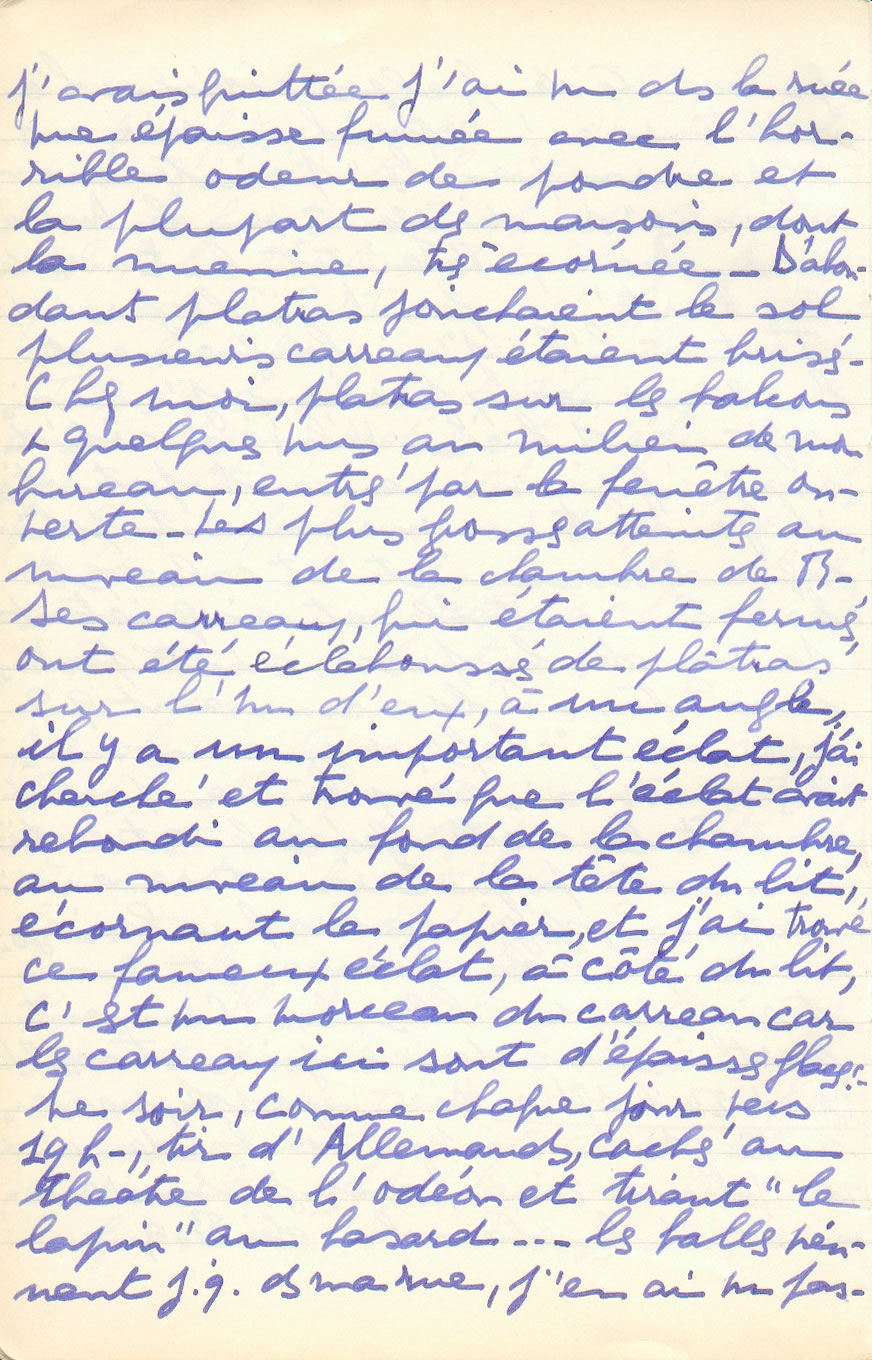 j'avais quittée j'ai vu ds la
une épaisse fumée avec l'hor-
rible odeur de poudre et
la plupart des maisons, dont
la mienne, très écornée - D'abon-
dants platras jonchaient le sol
plusieurs carreaux étaient brisés-
Chez moi, platras sur les balcons
& quelques uns au milieu de mon
bureau, entrés par la fenêtre ou-
verte - Les plus grosses atteintes au
niveau de la chambre de B-
Ses carreaux, qui étaient fermés,
ont été éclaboussés de plâtras,
sur l'un d'eux, à un angle,
il y a un important éclat, j'ai
cherché et trouvé que l'éclat avait
rebondi au fond de la chambre,
au niveau de la tête du lit,
écornant le papier, et j'ai trouvé
ce fameux éclat, à côté du lit,
c'est un morceau du carreau car
les carreaux ici sont d'épaisses glaces!-
Le soir, comme chaque jour vers
19h-, tir d'Allemands, cachés au
théâtre de l'odéon et tirant "le
lapin" au hasard --- les balles vien-
nent j.q. ds ma rue, j'en ai vu pas-